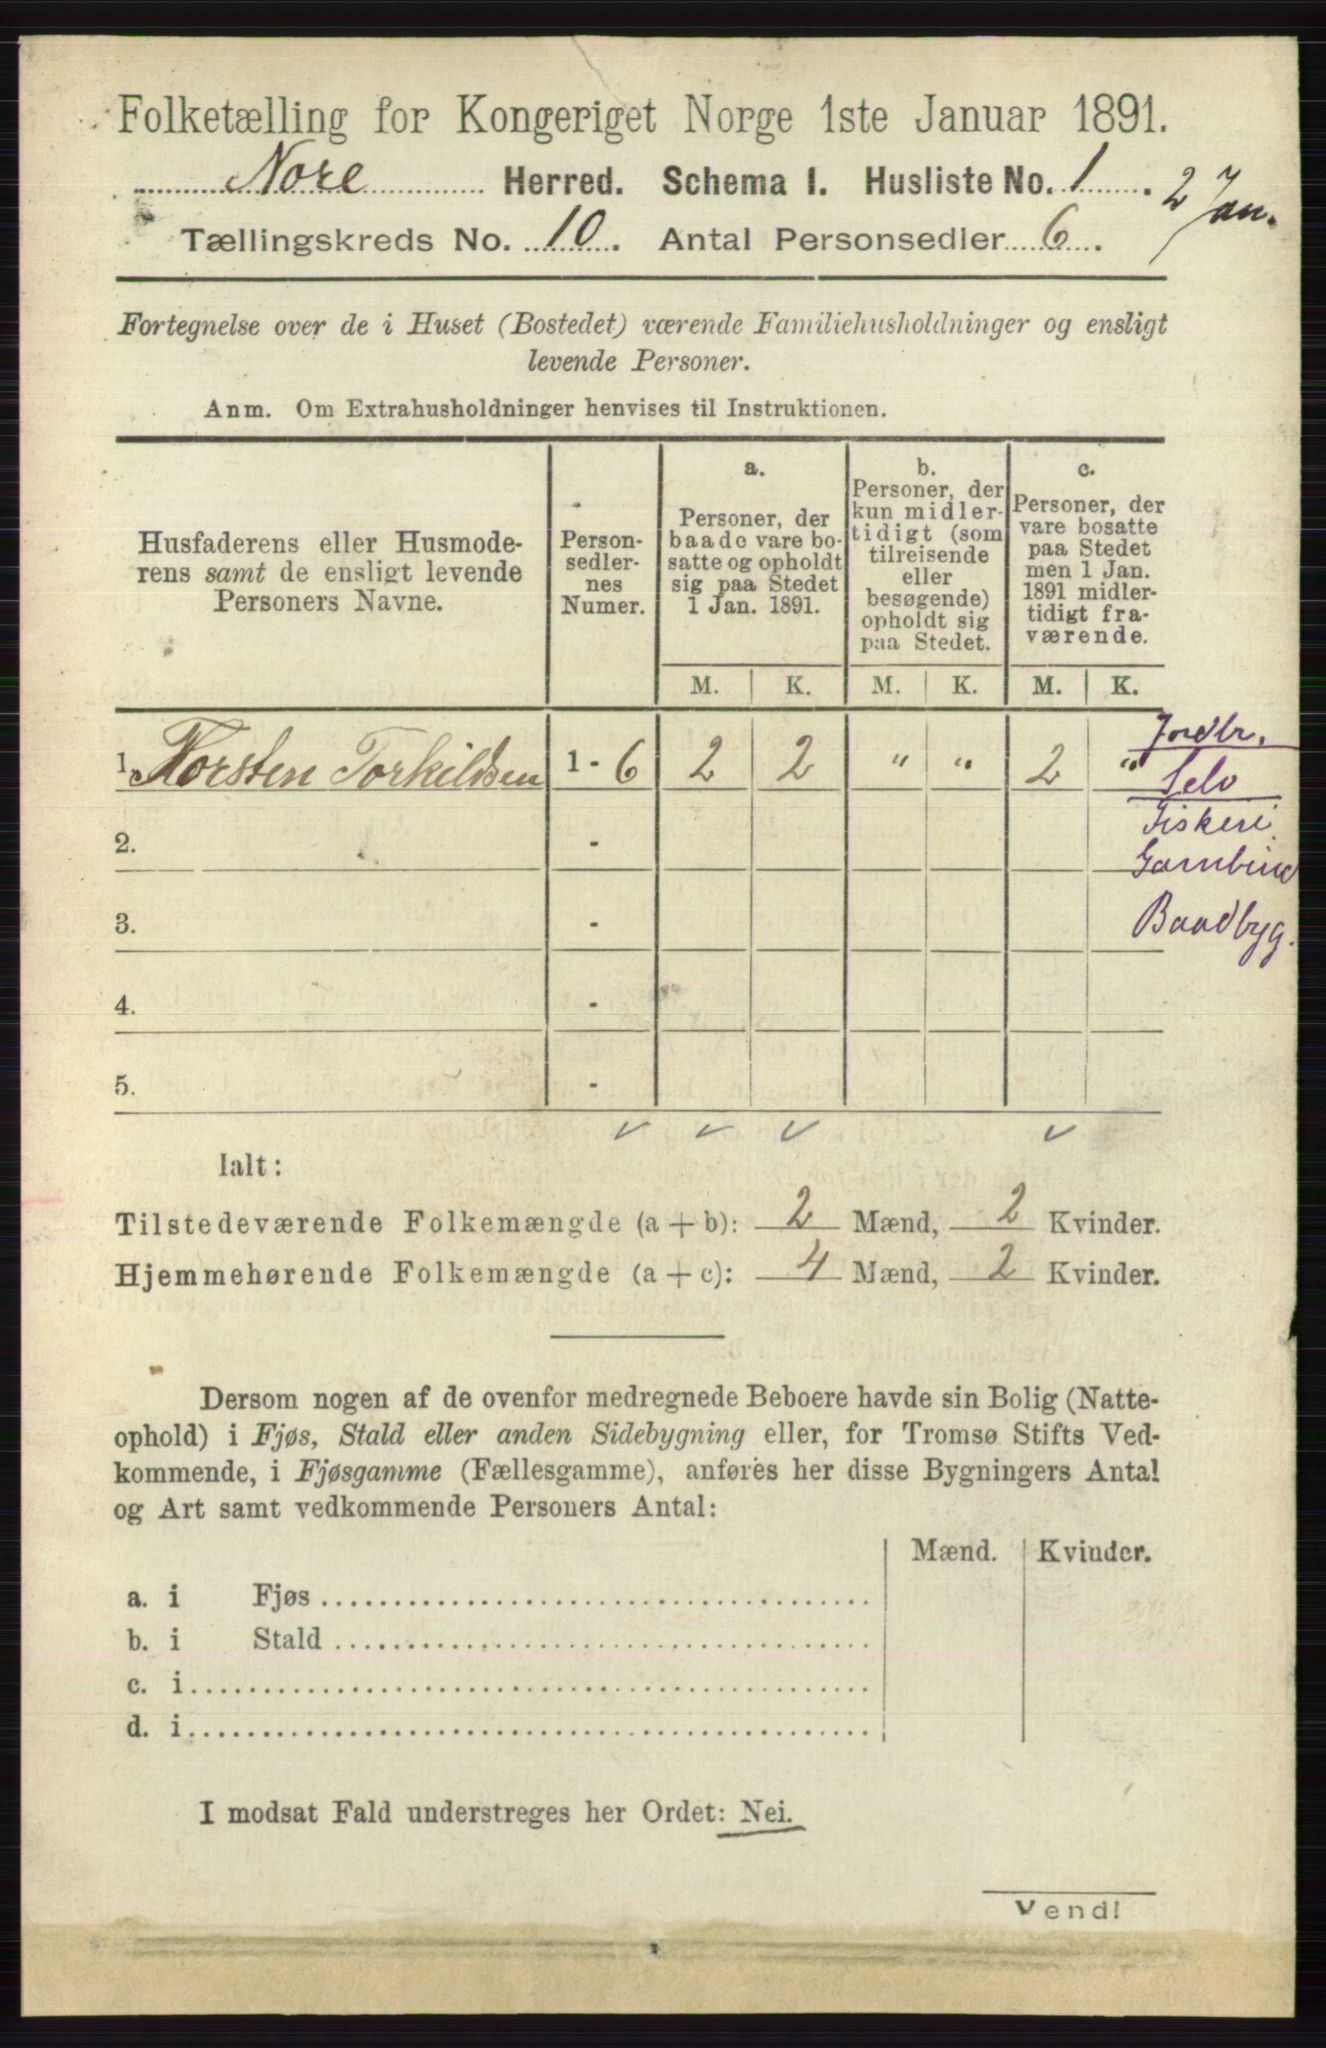 Folketælling for Kongeriget Norge 1ste Januar 1891.
Nore Herred. Schema I. Husliste No. 1.
2 Jan.
Tællingskreds No. 10. Antal Personsedler 6.
Fortegnelse over de i Huset (Bostedet) værende Familiehusholdninger og ensligt
levende Personer.
Anm. Om Extrahusholdninger henvises til Instruktionen.
Husfaderens eller Husmode-
rens samt de ensligt levende
Personers Navne.
Person-
sedler-
nes
Numer.
a.
Personer, der
baade vare bo-
satte og opholdt
sig paa Stedet
1 Jan. 1891.
b.
Personer, der
kun midler-
tidigt (som
tilreisende
eller
besøgende)
opholdt sig
paa Stedet.
c.
Personer, der
vare bosatte
paa Stedet
men 1 Jan.
1891 midler-
tidigt fra-
værende.
M. K. M. K. M. K.
1. Torsten Torkildsen 1 - 6 2 2 " " 2 "
Jordbr.
Selv
Fiskeri
Garnbind
Baadbyg.
2. -
3. -
4. -
5. -
Ialt:
Tilstedeværende Folkemængde (a + b): 2 Mænd, 2 Kvinder.
Hjemmehørende Folkemængde (a + c): 4 Mænd, 2 Kvinder.
Dersom nogen af de ovenfor medregnede Beboere havde sin Bolig (Natte-
ophold) i Fjøs, Stald eller anden Sidebygning eller, for Tromsø Stifts Ved-
kommende, i Fjøsgamme (Fællesgamme), anføres her disse Bygningers Antal
og Art samt vedkommende Personers Antal:
Mænd. Kvinder.
a. i Fjøs
b. i Stald
c. i
d. i
I modsat Fald understreges her Ordet: Nei.
Vend!